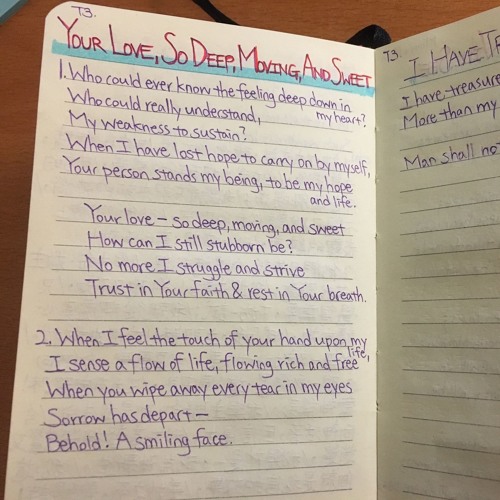 T3.
YOUR LOVE, SO DEEP, MOVING, AND SWEET
1. Who could ever know the feeling deep down in my heart?
Who could really understand,
My weakness to sustain?
When I have lost hope to carry on by myself,
Your person stands my being, to be my hope
and life.
Your love – so deep, moving, and sweet
How can I still stubborn be?
No more I struggle and strive
Trust in Your faith & rest in Your breath.
2. When I feel the touch of your hand upon my life,
I sense a flow of life, flowing rich and free
When you wipe away every tear in my eyes
Sorrow has depart –
Behold! A smiling face.
T3.
I HAVE
I have treasure
More than my
Man shall